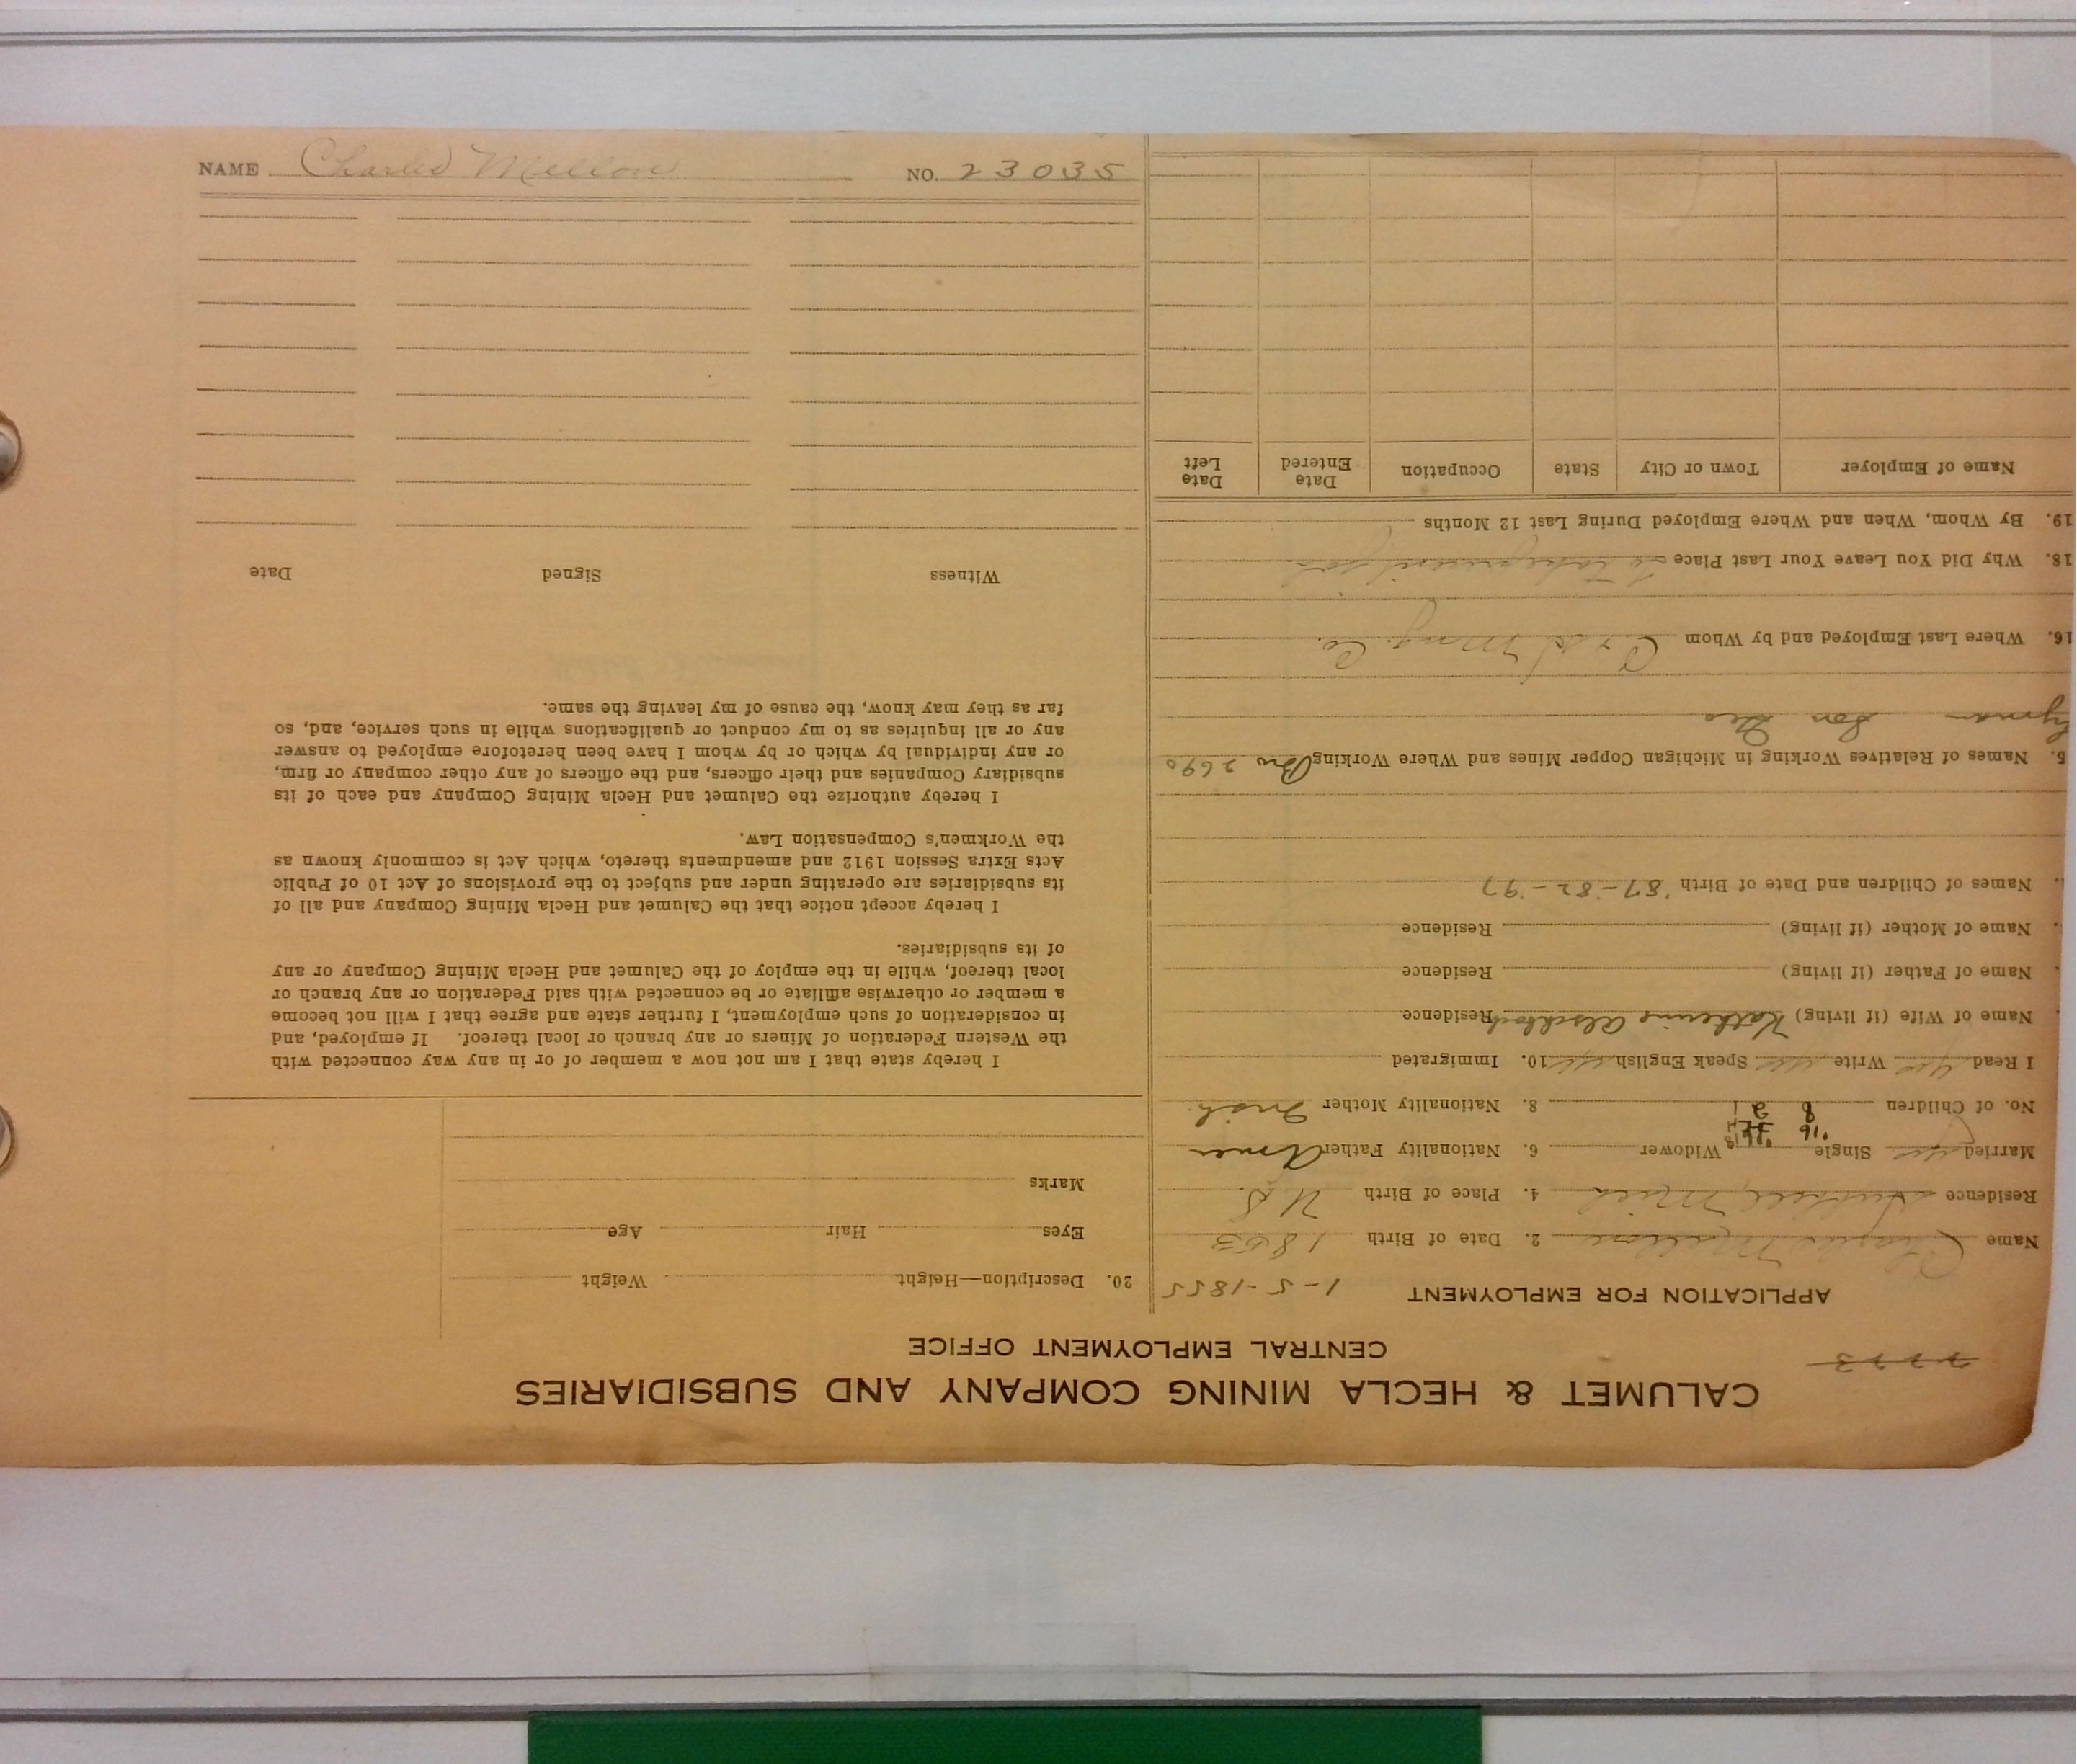 NAME Charles Mellon NO. 23035
CALUMET & HECLA MINING COMPANY AND SUBSIDIARIES
CENTRAL EMPLOYMENT OFFICE
2223
APPLICATION FOR EMPLOYMENT 1-5-1855
Name Charles 2. Date of Birth 1853
Residence Mich 4. Place of Birth U.S.
Married yes Single '16 Widower 6. Nationality Father Amer
No. of Children 8 21 8. Nationality Mother Irish
I Read yes Write yes Speak English yes 10. Immigrated
Name of Wife (if living) Katherine Residence
Name of Father (if living) Residence
Name of Mother (if living) Residence
Names of Children and Date of Birth '87-'82-'97
5. Names of Relatives Working in Michigan Copper Mines and Where Working Bro 2690
Son Geo
16. Where Last Employed and by Whom C & H Mng. Co.
18. Why Did You Leave Your Last Place
19. By Whom, When and Where Employed During Last 12 Months
Name of Employer Town or City State Occupation Date Entered Date Left
20. Description—Height Weight
Eyes Hair Age
Marks
I hereby state that I am not now a member of or in any way connected with
the Western Federation of Miners or any branch or local thereof. If employed, and
in consideration of such employment, I further state and agree that I will not become
a member or otherwise affiliate or be connected with said Federation or any branch or
local thereof, while in the employ of the Calumet and Hecla Mining Company or any
of its subsidiaries.
I hereby accept notice that the Calumet and Hecla Mining Company and all of
its subsidiaries are operating under and subject to the provisions of Act 10 of Public
Acts Extra Session 1912 and amendments thereto, which Act is commonly known as
the Workmen's Compensation Law.
I hereby authorize the Calumet and Hecla Mining Company and each of its
subsidiary Companies and their officers, and the officers of any other company or firm,
or any individual by which or by whom I have been heretofore employed to answer
any or all inquiries as to my conduct or qualifications while in such service, and, so
far as they may know, the cause of my leaving the same.
Witness Signed Date